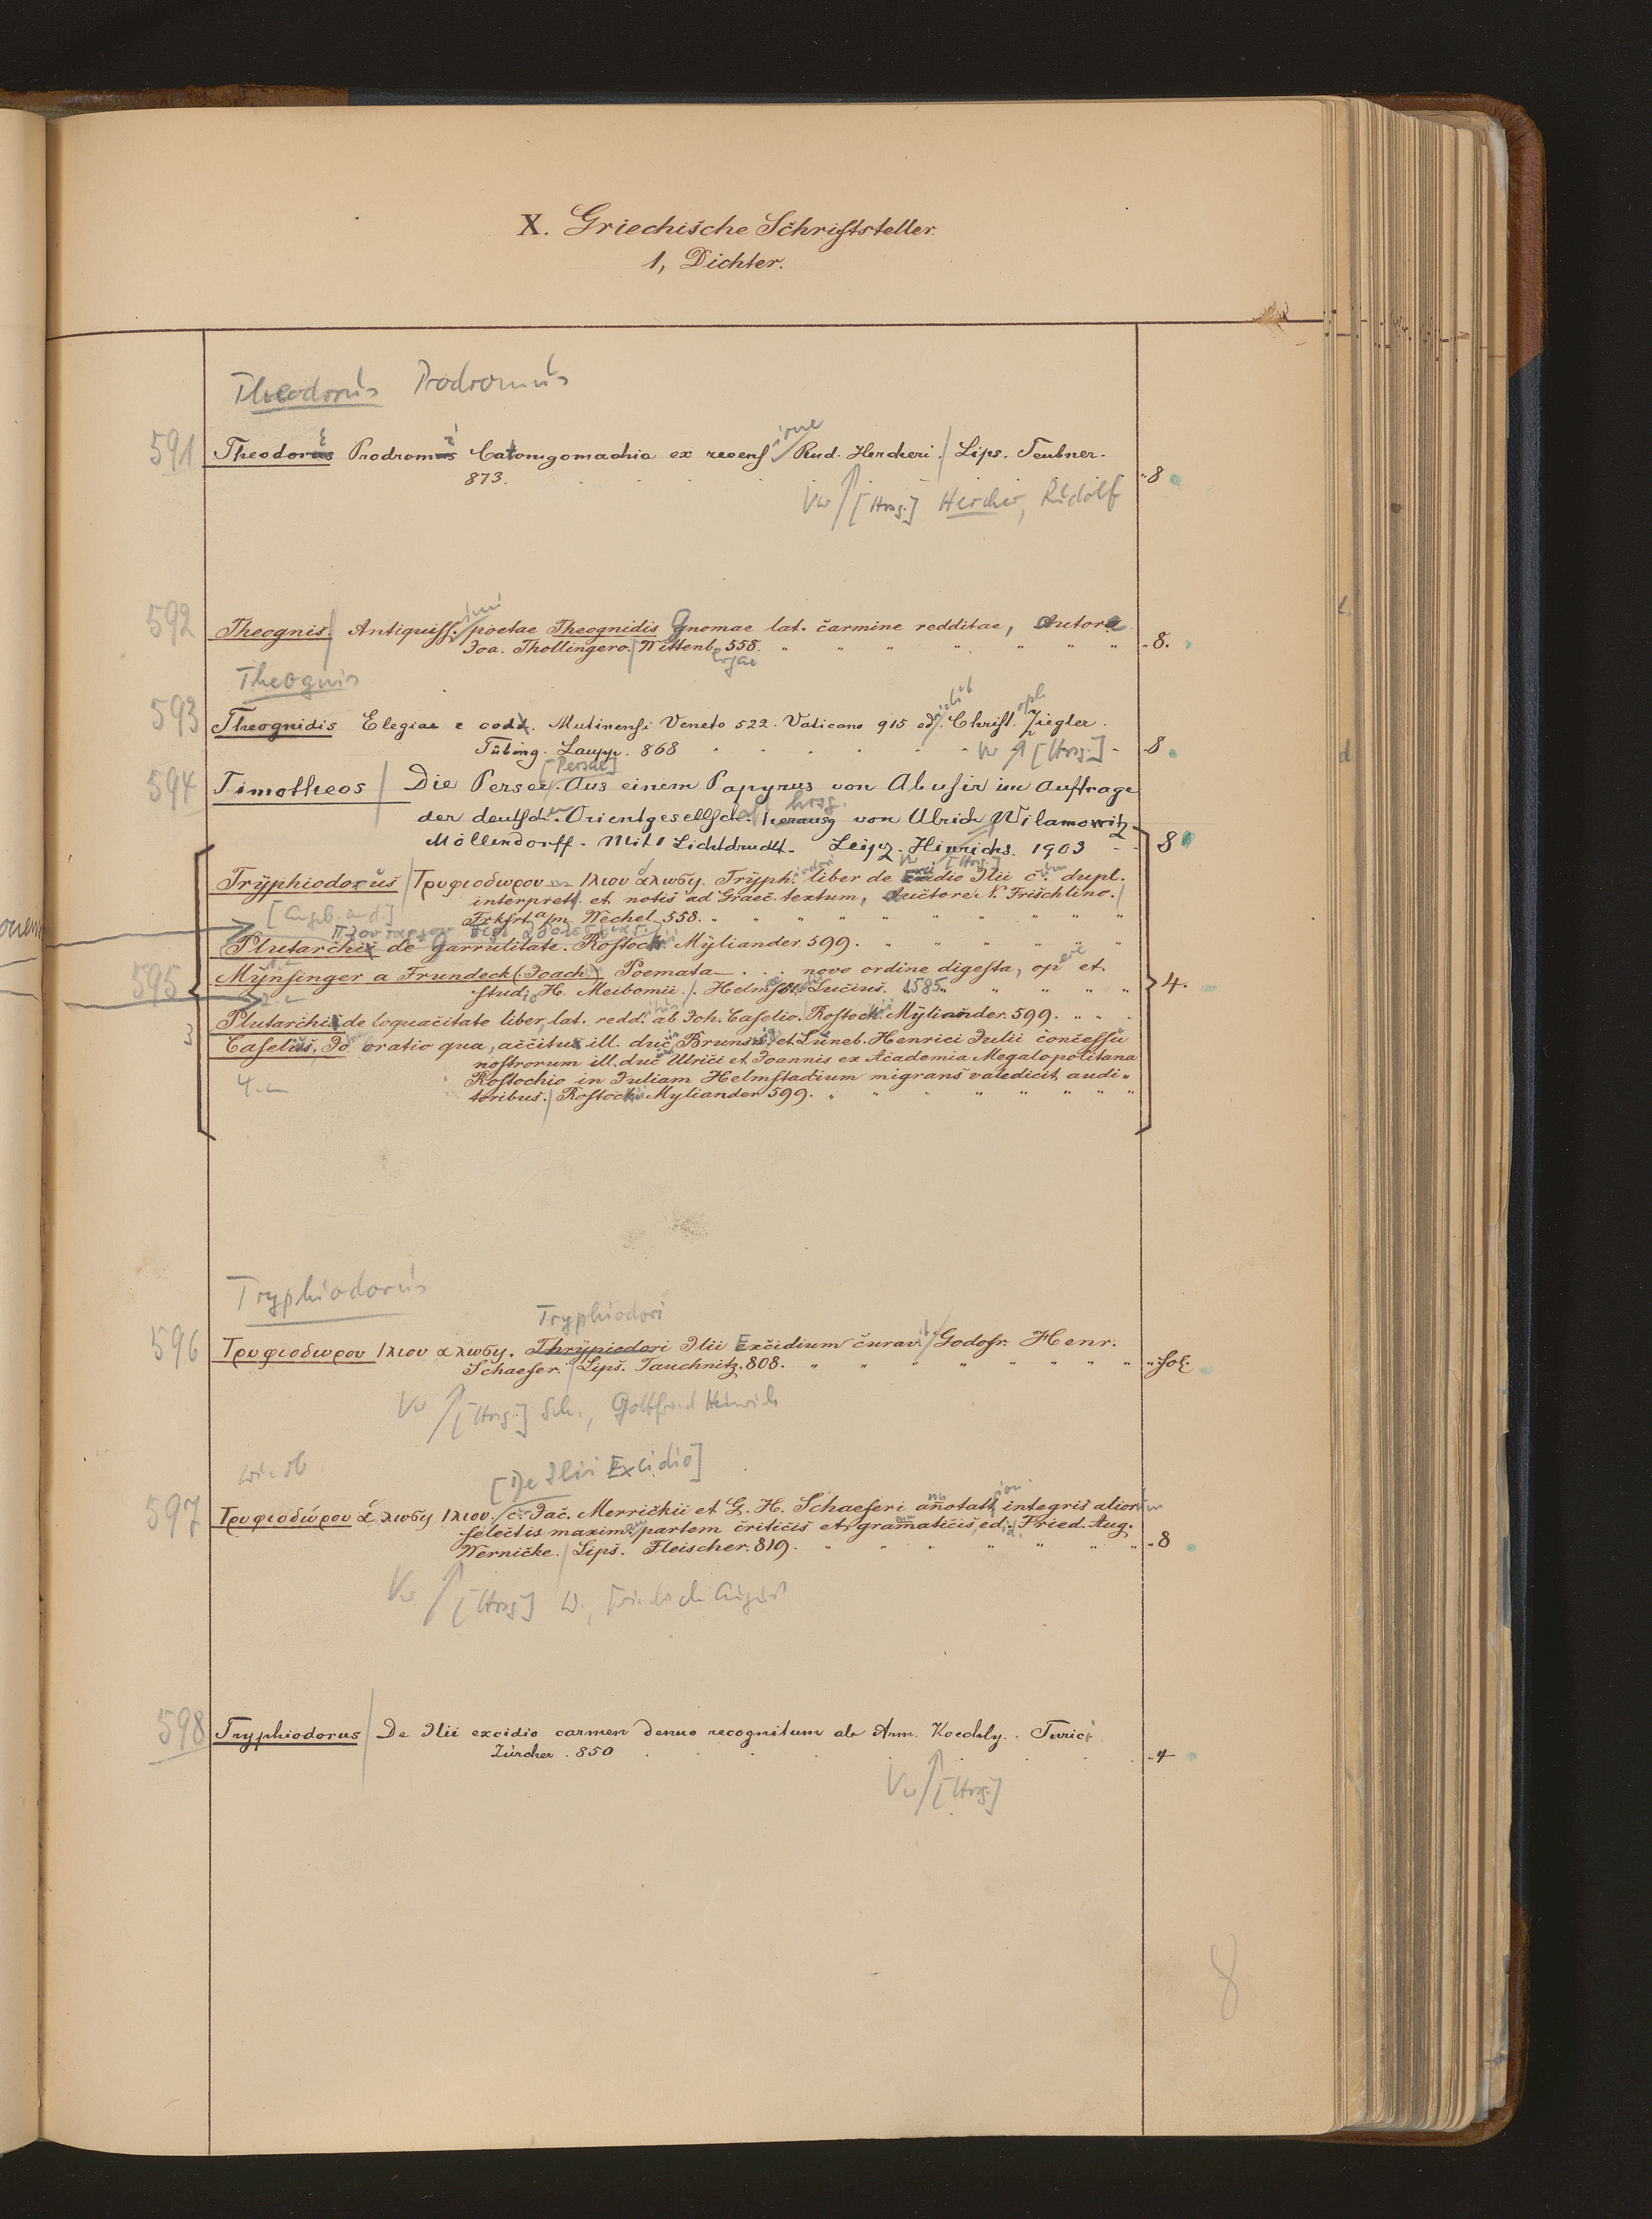 X. Griechische Schriftsteller.
1, Dichter.
Theodorus Prodromus
591 Theodorus Prodromus Catomyomachia ex recens. ione Rud. Hercheri. / Lips. Teubner.
873. „ 8
Vw / [Hrsg.] Hercher, Rudolf
592 Theognis. / Antiquiss. imi poetae Theognidis Gnomae lat. carmine redditae, Autore
Joa. Thollingero. / Wittenb. ergae 558. „ 8.
Theognis
593 Theognidis Elegiae e codd. Mutinensi Veneto 522. Vaticano 915 ed. Christ. oph Ziegler.
Tübing. Laupp. 868 Vw [Hrsg.] 8
594 Timotheos / Die Perser. [Persae] Aus einem Papyrus von Abusir im Auftrage
der deutsch. Orientgesellsch. herausg hrsg. von Ulrich Wilamowitz
Möllendorff. Mit 1 Lichtdruckt. Leipz. Hinrichs. 1903 8
Vw [Hrsg.]
Tryphiodorus / Τρυφιοδωρου Ιλιου άλωσις. Tryph. iodori liber de Excidio Ilii c. um dupl.
interpret. et notis ad Graec. textum, Auctore N. Frischlino. /
[Angeb. an d.] Frkfrt a/m. Wechel 558.
Plutarchi de Garrulitate. Rostock. Myliander. 599.
595 Mynsinger a Frundeck (Joach.) Poemata . . . novo ordine digesta, op ere et
studio H. Meibomii. / Helmst. Lucius. 1585. 4.
Plutarchi de loquacitate liber, lat. redd. ab Joh. Caselio. / Rostock. Myliander. 599.
3 Caselius, Jo oratio qua, accitu ill. duc. Brunsvic. et Lüneb. Henrici Julii concessu
nostrorum ill. duc. Ulrici et Joannis ex Academia Megalopolitana
Rostochio in Juliam Helmstadium migrans valedicit audi-
toribus. / Rostock Myliander 599.
Tryphiodorus
Tryphiodori
596 Τρυφιοδωρου Ιλιου αλωσις. Thrypiodori Ilii Excidium curav. it / Godofr. Henr.
Schaefer. / Lips. Tauchnitz. 808. „ fol.
Vw / [Hrsg.] Sch., Gottfried Heinrich
wie ob. [De Ilii Excidio]
597 Τρυφιοδώρου άλωσις Ιλιου. / c. Jac. Merrickii et G. H. Schaeferi annotat. ioni integris aliorum
selectis maxim. am partem criticis et grammaticis, ed. id. Fried. Aug.
Wernicke. / Lips. Fleischer. 819. „ 8
Vw / [Hrsg.] W., Friedrich August
598 Tryphiodorus / De Ilii excidio carmen denuo recognitum ab Arm. Koechly. . Turici
Zürcher. 850 „ 4
Vw / [Hrsg.]
8